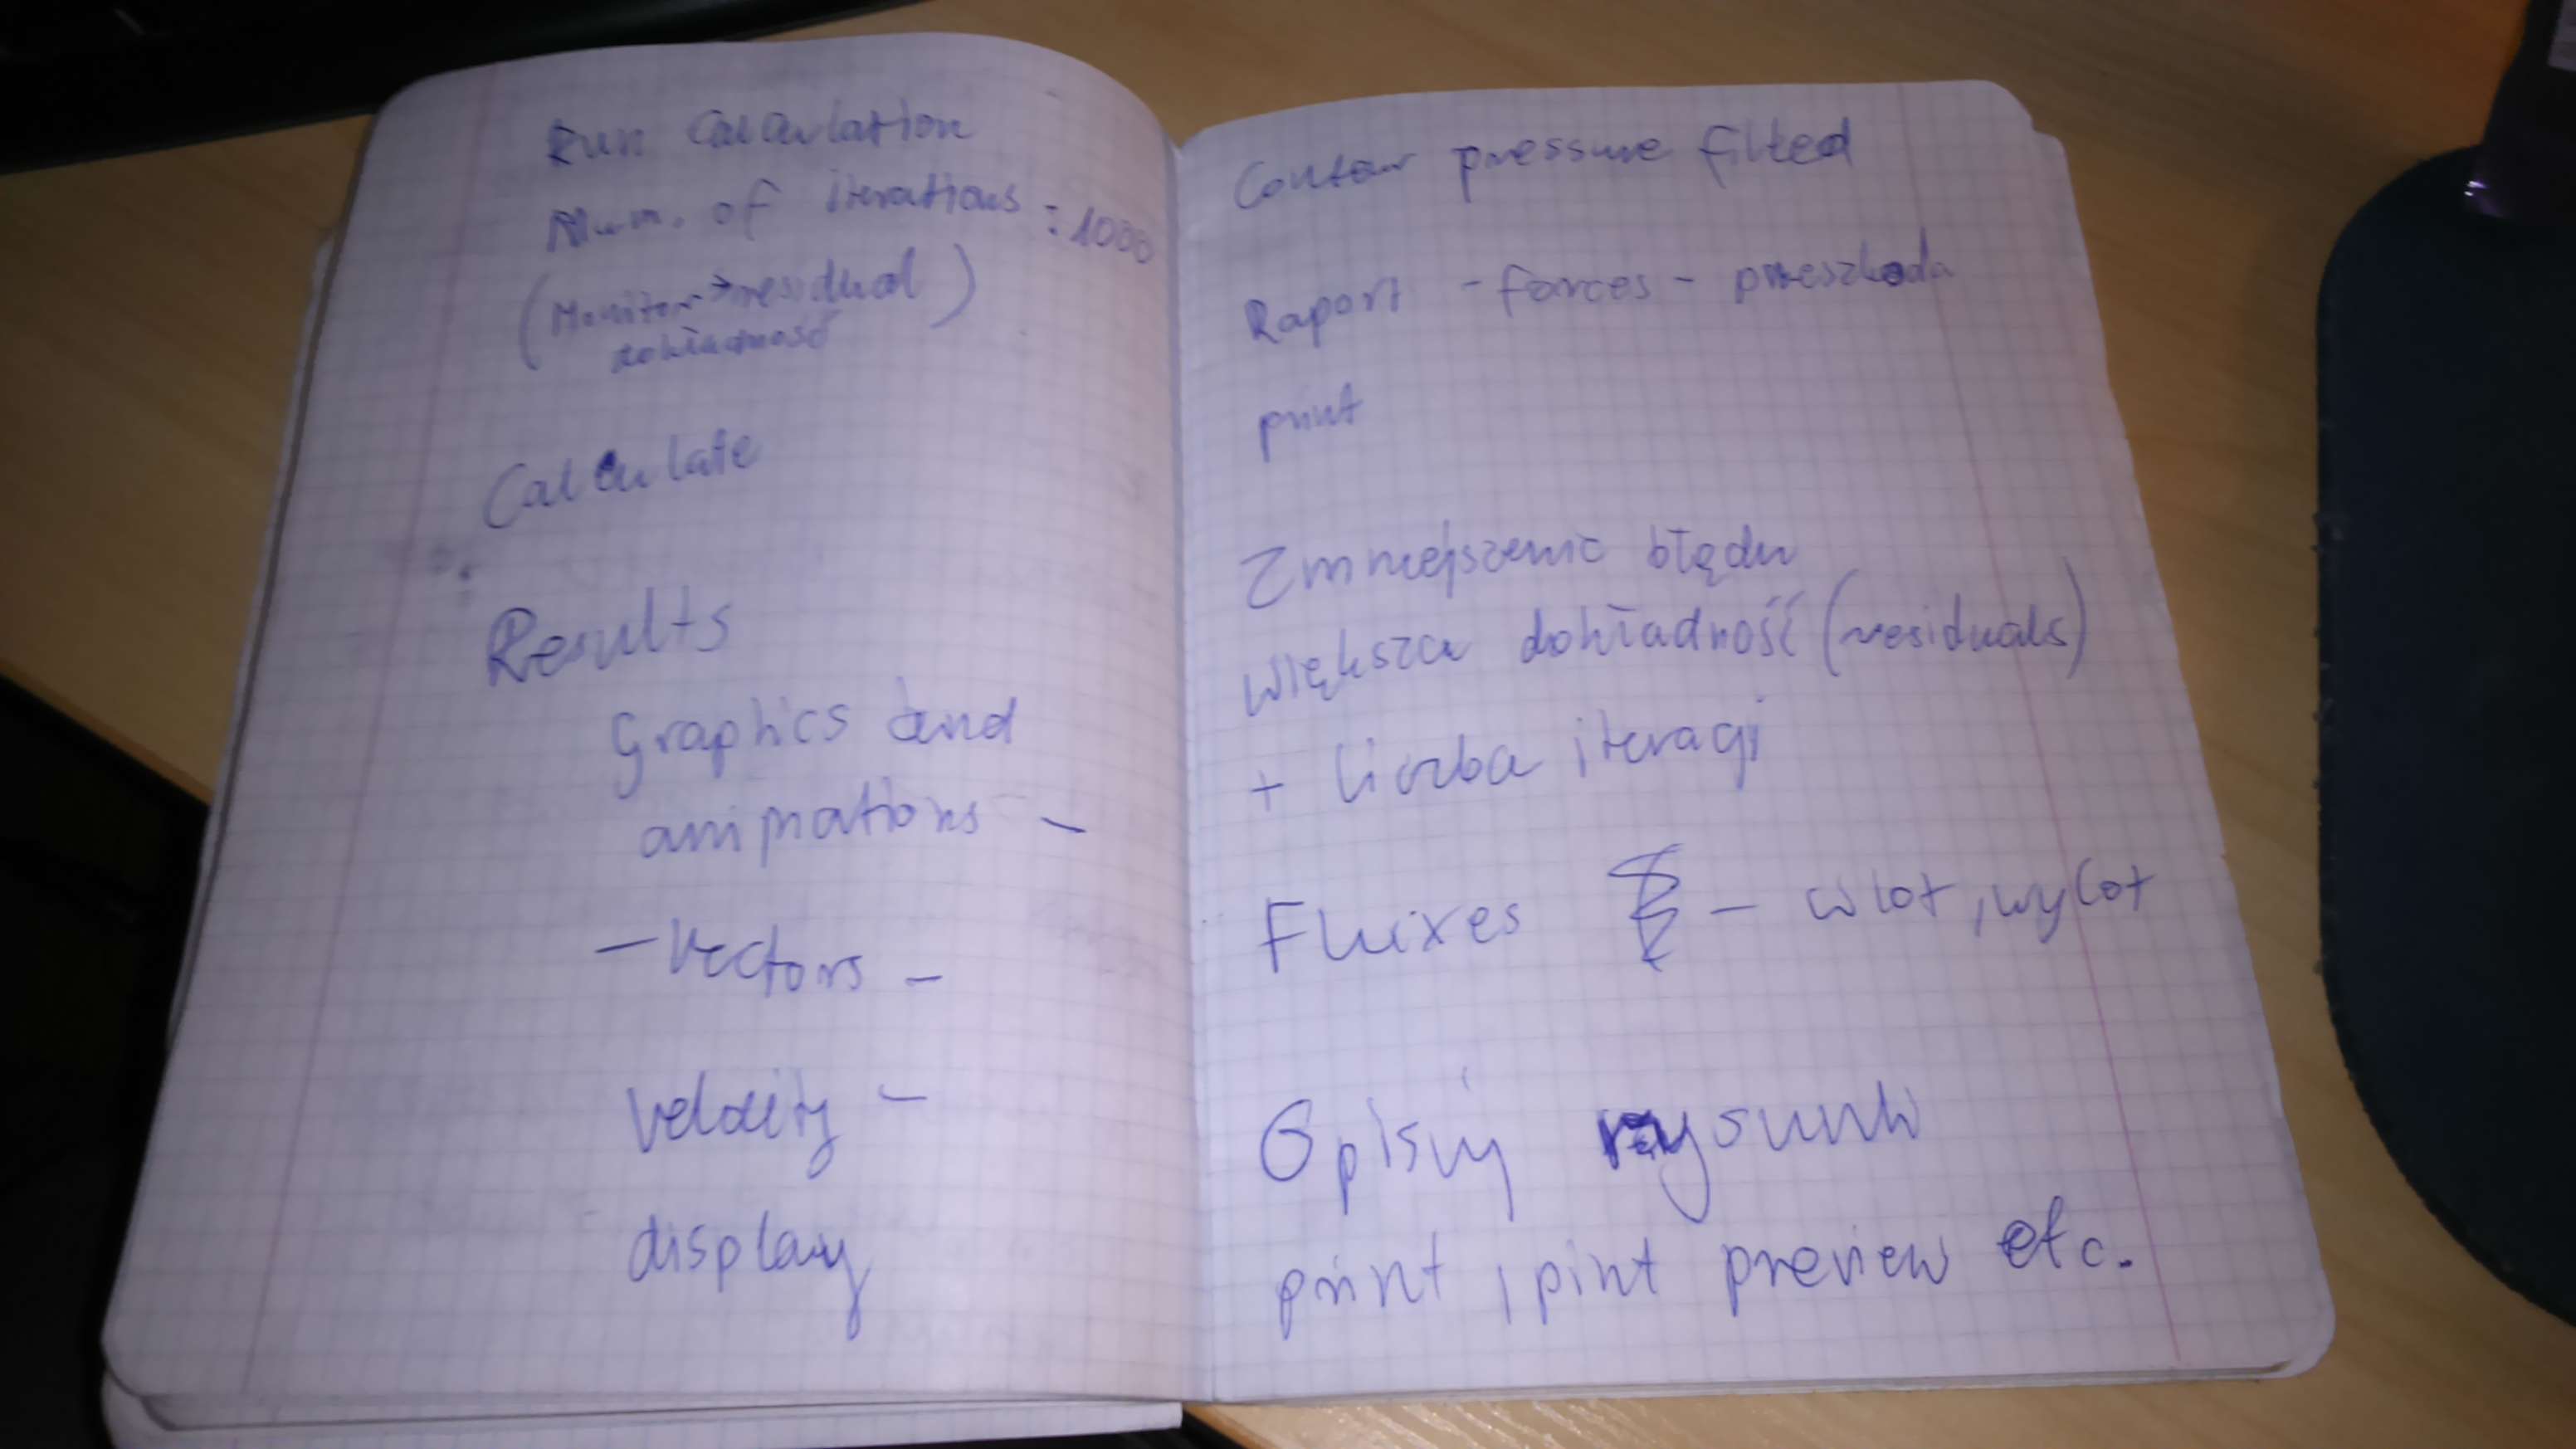 Run Calculation
Num. of iterations : 1000
(Monitor → residual
dokładność)
Calculate
Results
Graphics and
animations -
- Vectors -
velocity -
display
Contour pressure filted
Raport - forces - przeszkoda
print
Zmniejszenie błędu
większa dokładność (residuals)
+ liczba iteracji
Fluixes - wlot, wylot
Opisuj rysunki
print, pint preview etc.